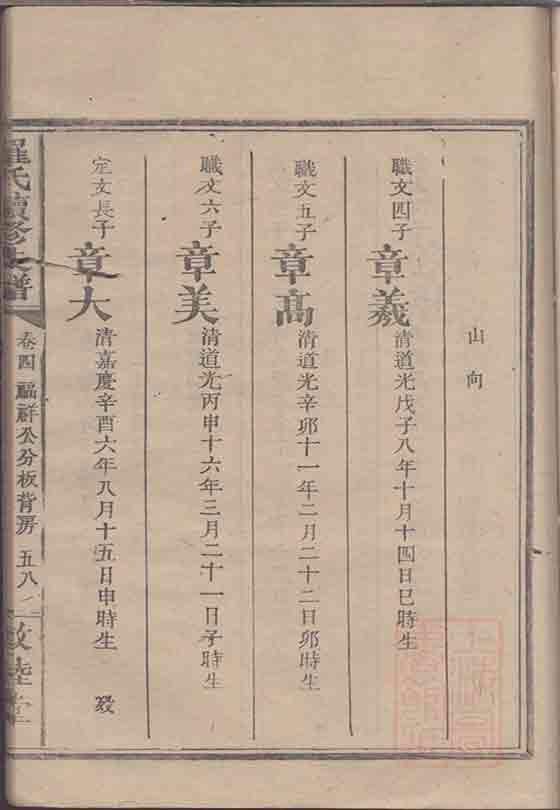 山向
職文四子 章羲 清道光戊子八年十月十四日巳時生
職文五子 章高 清道光辛卯十一年二月二十二日卯時生
職文六子 章美 清道光丙申十六年三月二十一日子時生
定文長子 章大 清嘉慶辛酉六年八月十五日申時生 歿
羅氏續修族譜 卷四 福祥公分板背房 五八 敦睦堂